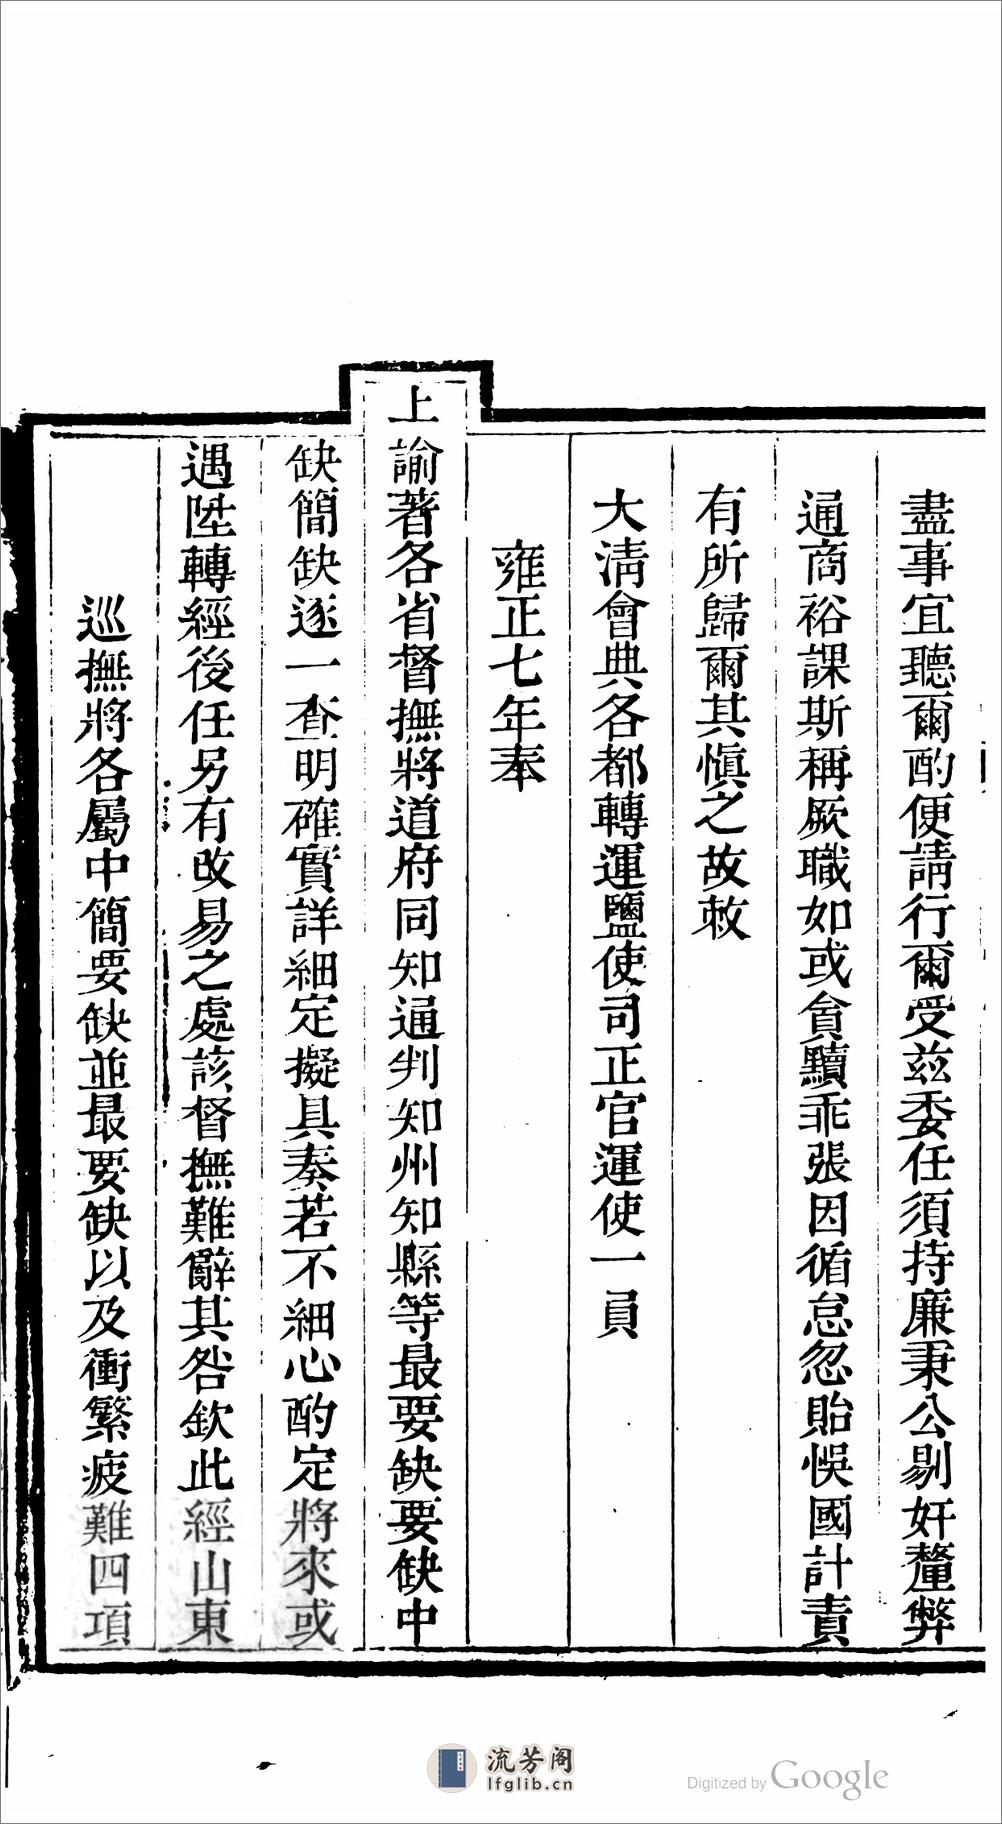 盡事宜聽爾酌便請行爾受茲委任須持廉秉公剔奸釐弊
通商裕課斯稱厥職如或貪黷乖張因循怠忽貽悞國計責
有所歸爾其慎之故敕
大淸會典各都轉運鹽使司正官運使一員
雍正七年奉
上諭著各省督撫將道府同知通判知州知縣等最要缺要缺中
缺簡缺逐一查明確實詳細定擬具奏若不細心酌定將來或
遇陞轉經後任另有改易之處該督撫難辭其咎欽此經山東
巡撫將各屬中簡要缺並最要缺以及衝繁疲難四項
流芳阁
lfglib.cn
Digitized by Google